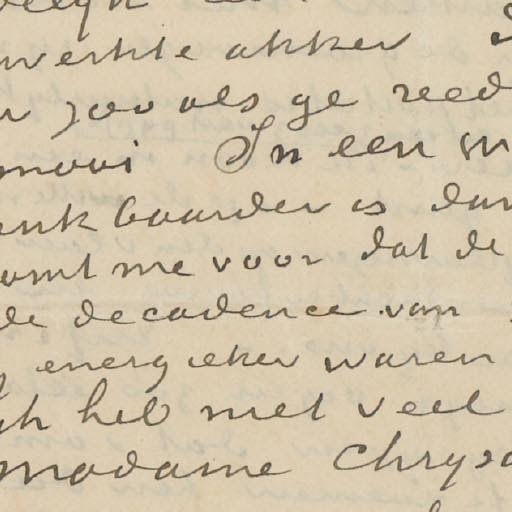 werkte akker
zooals ge reed
mooi In een
enkbaarder is dan
omt me voor dat de
de decadence van
energieker waren
ik heb met veel
madame Chrysa